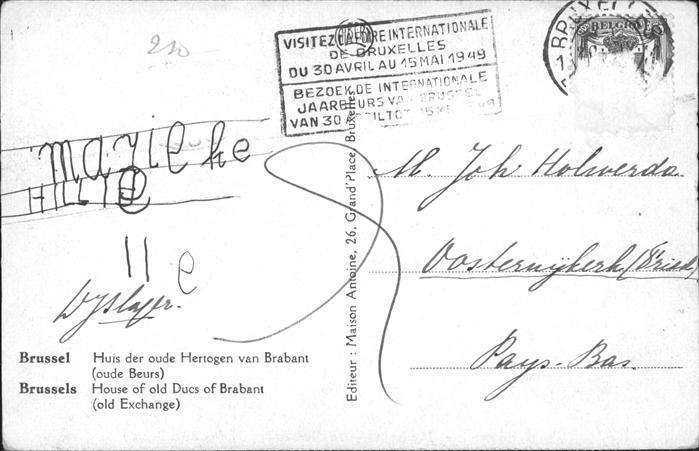 210
VISITEZ LA FOIRE INTERNATIONALE
DE BRUXELLES
DU 30 AVRIL AU 15 MAI 1949
BEZOEK DE INTERNATIONALE
JAARBEURS VAN BRUSSEL
VAN 30 APRIL TOT 15 MEI 1949
BRUXELLES
BELGIE
Marijke
e
M. Joh Holwerda
Oosternijkerk (Fries)
Pays-Bas.
Editeur : Maison Antoine, 26, Grand'Place, Bruxelles
Brussel Huis der oude Hertogen van Brabant
(oude Beurs)
Brussels House of old Ducs of Brabant
(old Exchange)